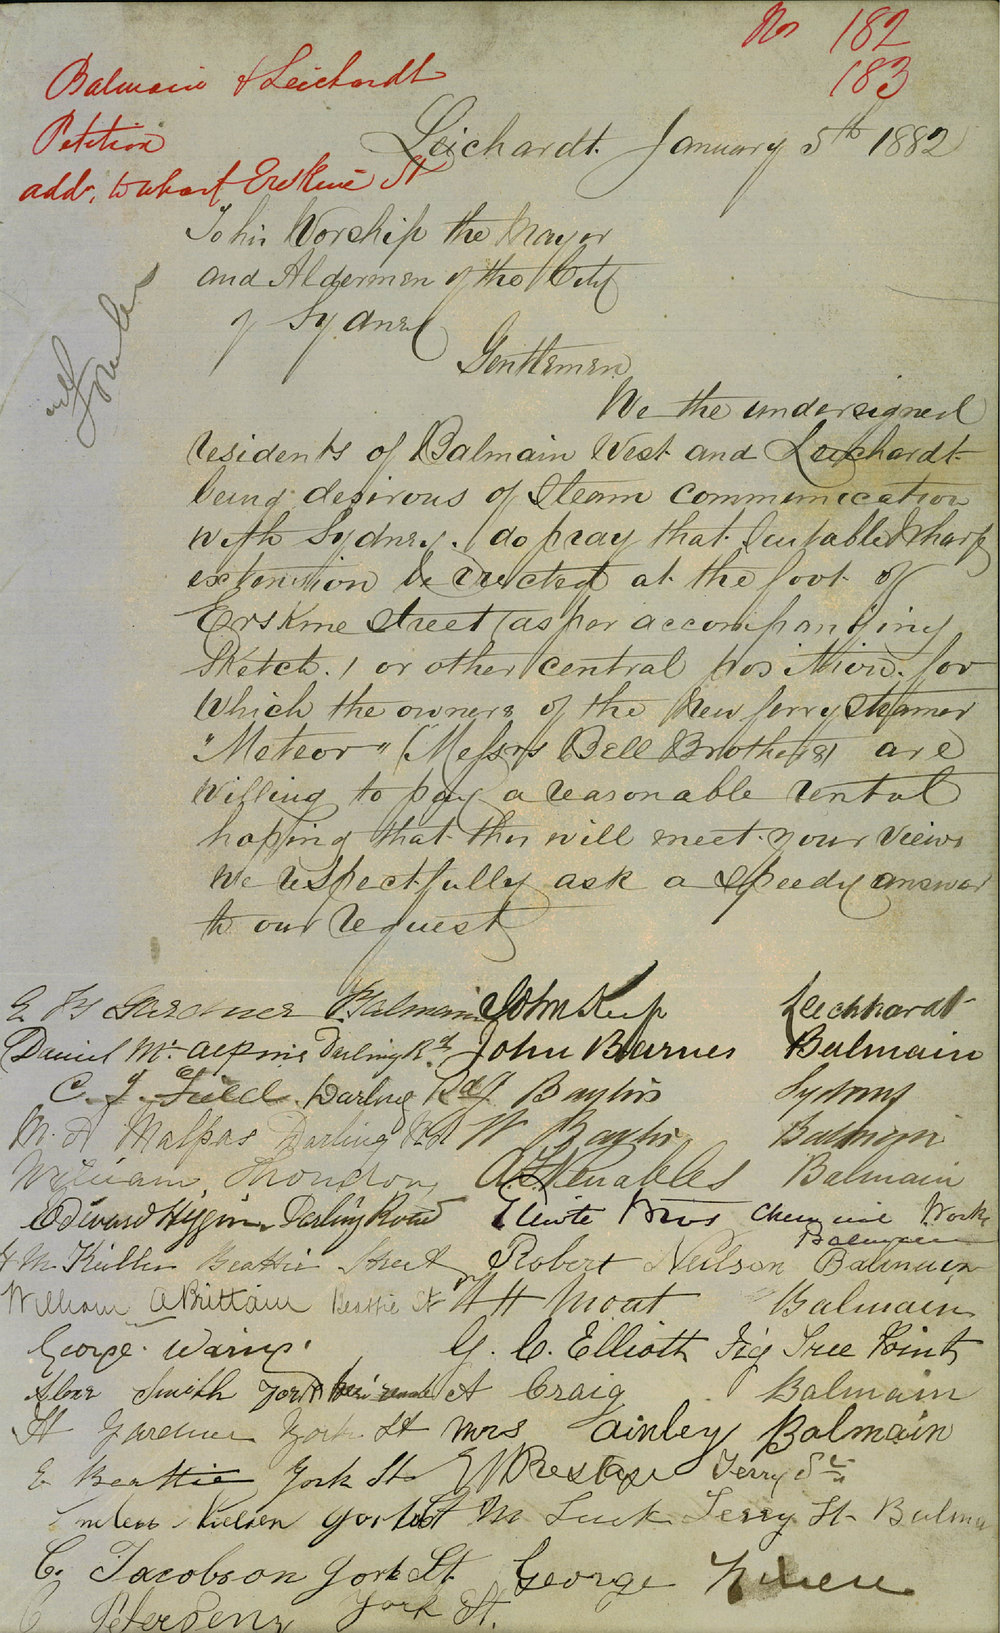 No 182
183
Balmain & Leichardt
Petition
addn. to wharf Erskine St
Leichardt January 5th 1882
To his Worship the Mayor
and Aldermen of the City
of Sydney
Gentlemen
We the undersigned
residents of Balmain West and Leichardt
being desirous of steam communication
with Sydney. do pray that suitable Wharf
extension be erected at the foot of
Erskine Street (as per accompanying
sketch.) or other central position. for
which the owners of the New ferry steamer
"Meteor" (Messrs Bell Brothers) are
willing to pay a reasonable rental
hoping that this will meet your views
We respectfully ask a speedy answer
to our request
Gardner Balmain John Keep Leichhardt
Daniel Mc Alpine Darling Rd John Barnes Balmain
C. J. Field. Darling Rd J Bayliss Sydney
M. A Malpas Darling Rd W Balmain
William A. Venables Balmain
Edward Higgins Darling Road Elliott Bros Chemical Works
Balmain
Beattie Street Robert Neilson Balmain
William A Brittain Beattie St W H Moat Balmain
George Waring. G. C. Elliott Fig Tree Point
Smith York A Craig Balmain
H Gardner York St Mrs Ainley Balmain
E Beattie York St Terry St
Nielsen York St M Luck Terry St Balma
C. Jacobson York St. George
C Petersens York St.